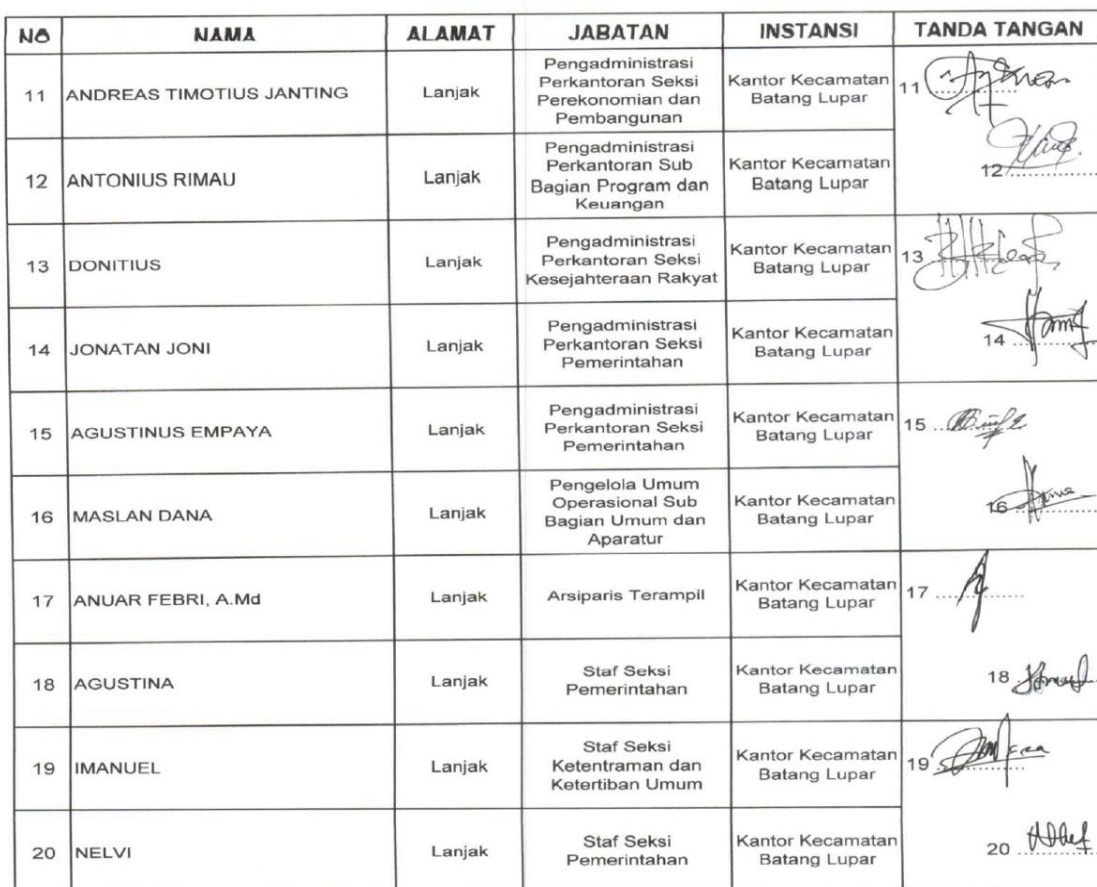 NO NAMA ALAMAT JABATAN INSTANSI TANDA TANGAN
11 ANDREAS TIMOTIUS JANTING Lanjak Pengadministrasi Perkantoran Seksi Perekonomian dan Pembangunan Kantor Kecamatan Batang Lupar 11
12 ANTONIUS RIMAU Lanjak Pengadministrasi Perkantoran Sub Bagian Program dan Keuangan Kantor Kecamatan Batang Lupar 12
13 DONITIUS Lanjak Pengadministrasi Perkantoran Seksi Kesejahteraan Rakyat Kantor Kecamatan Batang Lupar 13
14 JONATAN JONI Lanjak Pengadministrasi Perkantoran Seksi Pemerintahan Kantor Kecamatan Batang Lupar 14
15 AGUSTINUS EMPAYA Lanjak Pengadministrasi Perkantoran Seksi Pemerintahan Kantor Kecamatan Batang Lupar 15
16 MASLAN DANA Lanjak Pengelola Umum Operasional Sub Bagian Umum dan Aparatur Kantor Kecamatan Batang Lupar 16
17 ANUAR FEBRI, A.Md Lanjak Arsiparis Terampil Kantor Kecamatan Batang Lupar 17
18 AGUSTINA Lanjak Staf Seksi Pemerintahan Kantor Kecamatan Batang Lupar 18
19 IMANUEL Lanjak Staf Seksi Ketentraman dan Ketertiban Umum Kantor Kecamatan Batang Lupar 19
20 NELVI Lanjak Staf Seksi Pemerintahan Kantor Kecamatan Batang Lupar 20